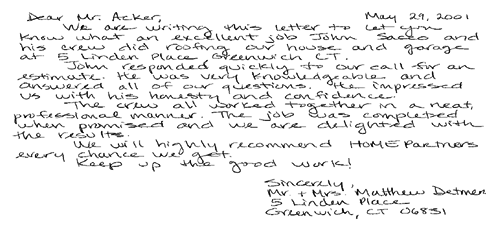 Dear Mr. Acker, May 29, 2001
We are writing this letter to let you
know what an excellent job John Sacco and
his crew did roofing our house and garage
at 5 Linden Place Greenwich CT.
John responded quickly to our call for an
estimate. He was very knowledgeable and
answered all of our questions. He impressed
us with his honesty and confidence.
The crew all worked together in a neat,
professional manner. The job was completed
when promised and we are delighted with
the results.
We will highly recommend HOME Partners
every chance we get.
Keep up the good work!
Sincerely,
Mr. + Mrs. Matthew Detmer
5 Linden Place
Greenwich, CT 06831